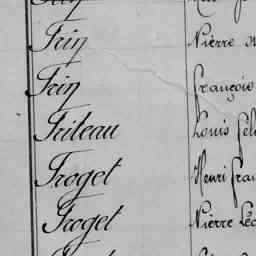 Frin Pierre
Frin François
Friteau Louis
Froget Henri
Froget Pierre